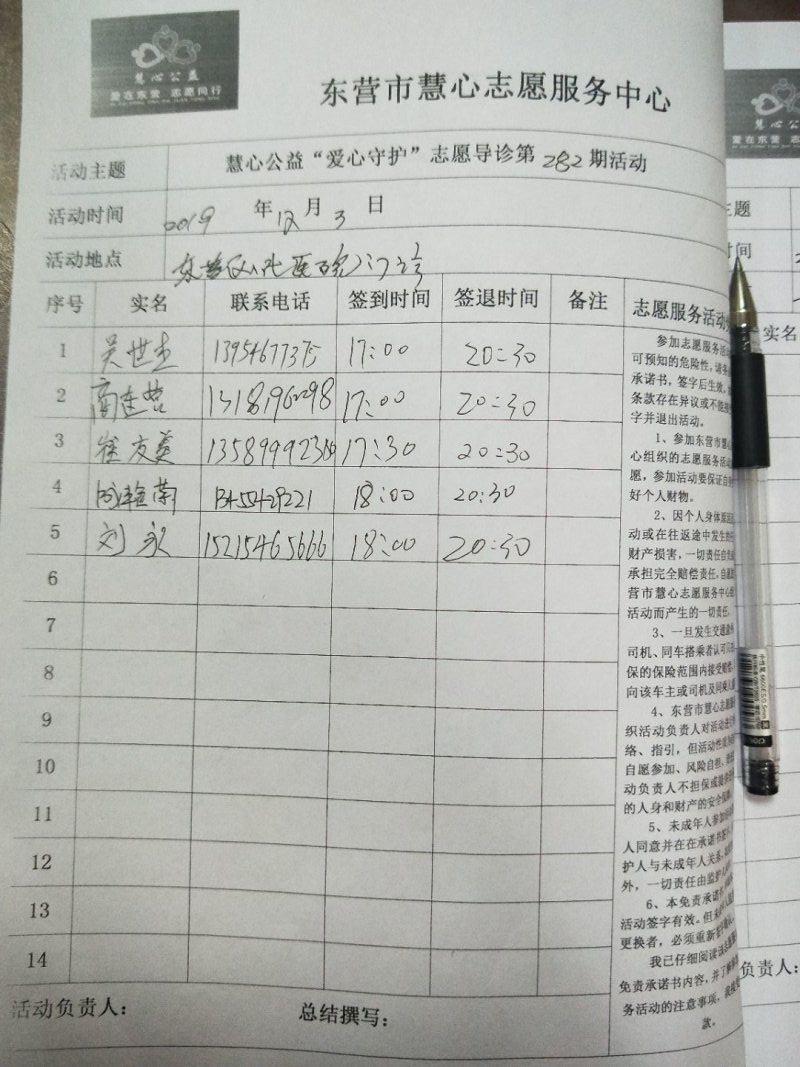 慧心公益
爱在东营 志愿同行
东营市慧心志愿服务中心
活动主题 慧心公益“爱心守护”志愿导诊第282期活动
活动时间 2019年12月3日
活动地点
序号 实名 联系电话 签到时间 签退时间 备注 志愿服务活动
1 吴世杰 13954677375 17:00 20:30
2 17:00 20:30
3 崔友美 17:30 20:30
4 18:00 20:30
5 刘永 15215465666 18:00 20:30
6
7
8
9
10
11
12
13
14
参加志愿服务活
可预知的危险性,请务
承诺书,签字后生效,
条款存在异议或不能接
字并退出活动。
1、参加东营市慧心
心组织的志愿服务活动
愿,参加活动要保证自
好个人财物。
2、因个人身体原因
动或在往返途中发生的
财产损害,一切责任自
承担完全赔偿责任,自愿
营市慧心志愿服务中心
活动而产生的一切责任。
3、一旦发生交通
司机、同车搭乘者认可
保的保险范围内接受赔偿,
向该车主或司机及同乘人
4、东营市慧心志愿服
织活动负责人对活动进行
络、指引,但活动性质
自愿参加、风险自担、
动负责人不担保或提供
的人身和财产的安全保
5、未成年人参加
人同意并在在承诺书签
护人与未成年人关系,
外,一切责任由监护人
6、本免责承诺书
活动签字有效。但
更换者,必须重新签
我已仔细阅读
免责承诺书内容,并了解
务活动的注意事项,
款。
活动负责人: 总结撰写:
慧心公
爱在东营 志
主题
时间
实名
负责人: